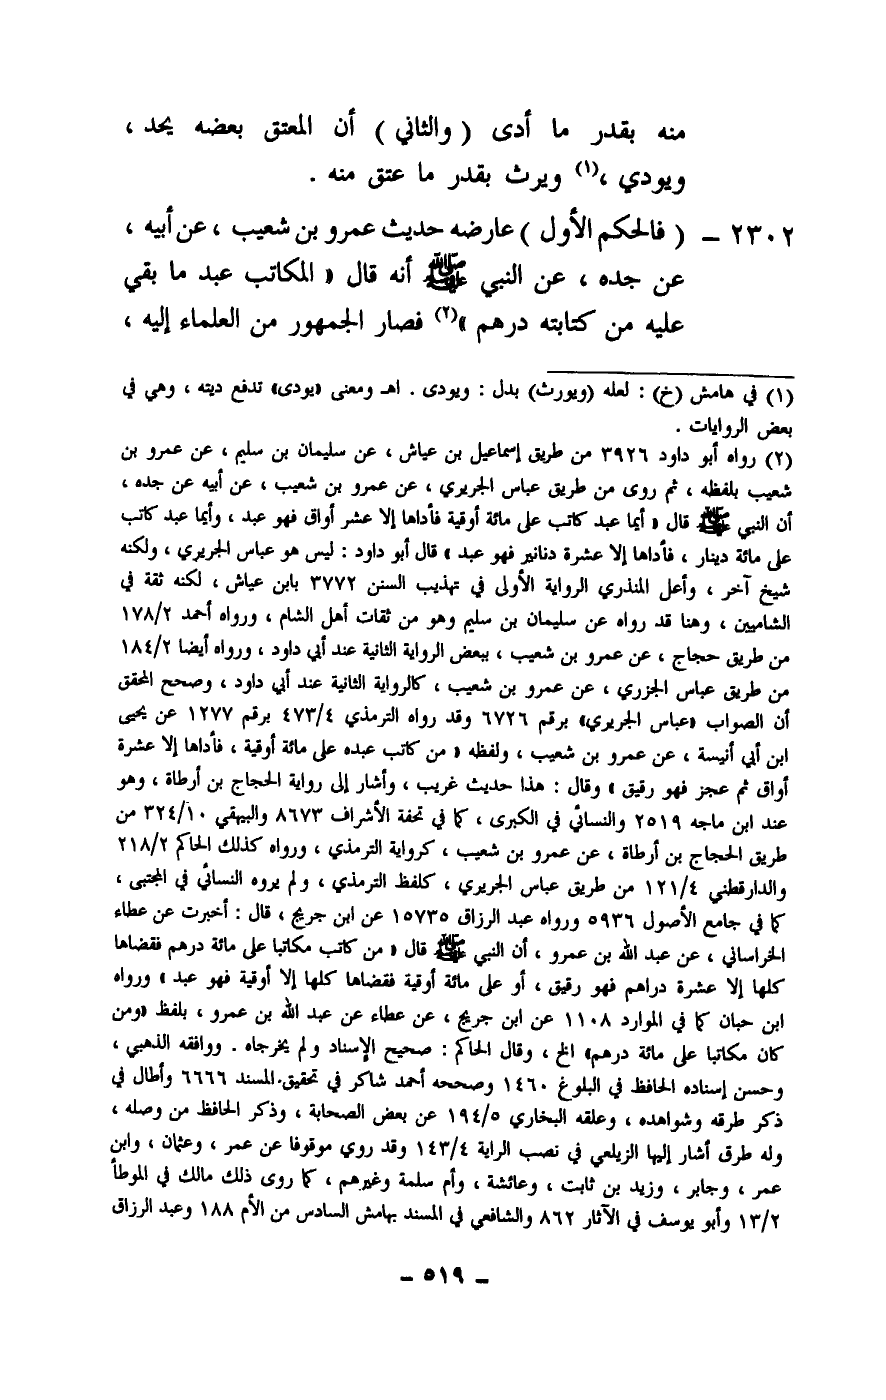 منه بقدر ما أدى ( والثاني ) أن المعتق بعضه يحد ،
ويودي ،(١) ويرث بقدر ما عتق منه .
٢٣٠٢ – ( فالحكم الأول ) عارضه حديث عمرو بن شعيب ، عن أبيه ،
عن جده ، عن النبي ﷺ أنه قال « المكاتب عبد ما بقي
عليه من كتابته درهم »(٢) فصار الجمهور من العلماء إليه ،
(١) في هامش (خ) : لعله (ويورث) بدل : ويودى . اهـ ومعنى «يودى» تدفع ديته ، وهي في
بعض الروايات .
(٢) رواه أبو داود ٣٩٢٦ من طريق إسماعيل بن عياش ، عن سليمان بن سليم ، عن عمرو بن
شعيب بلفظه ، ثم روى من طريق عباس الجريري ، عن عمرو بن شعيب ، عن أبيه عن جده ،
أن النبي ﷺ قال « أيما عبد كاتب على مائة أوقية فأداها إلا عشر أواق فهو عبد ، وأيما عبد كاتب
على مائة دينار ، فأداها إلا عشرة دنانير فهو عبد » قال أبو داود : ليس هو عباس الجريري ، ولكنه
شيخ آخر ، وأعل المنذري الرواية الأولى في تهذيب السنن ٣٧٧٢ بابن عياش ، لكنه ثقة في
الشاميين ، وهنا قد رواه عن سليمان بن سليم وهو من ثقات أهل الشام ، ورواه أحمد ١٧٨/٢
من طريق حجاج ، عن عمرو بن شعيب ، ببعض الرواية الثانية عند أبي داود ، ورواه أيضا ١٨٤/٢
من طريق عباس الجزري ، عن عمرو بن شعيب ، كالرواية الثانية عند أبي داود ، وصحح المحقق
أن الصواب «عباس الجريري» برقم ٦٧٢٦ وقد رواه الترمذي ٤٧٣/٤ برقم ١٢٧٧ عن يحيى
ابن أبي أنيسة ، عن عمرو بن شعيب ، ولفظه « من كاتب عبده على مائة أوقية ، فأداها إلا عشرة
أواق ثم عجز فهو رقيق » وقال : هذا حديث غريب ، وأشار إلى رواية الحجاج بن أرطاة ، وهو
عند ابن ماجه ٢٥١٩ والنسائي في الكبرى ، كما في تحفة الأشراف ٨٦٧٣ والبيهقي ٣٢٤/١٠ من
طريق الحجاج بن أرطاة ، عن عمرو بن شعيب ، كرواية الترمذي ، ورواه كذلك الحاكم ٢١٨/٢
والدارقطني ١٢١/٤ من طريق عباس الجريري ، كلفظ الترمذي ، ولم يروه النسائي في المجتبى ،
كما في جامع الأصول ٥٩٣٦ ورواه عبد الرزاق ١٥٧٣٥ عن ابن جريج ، قال : أخبرت عن عطاء
الخراساني ، عن عبد الله بن عمرو ، أن النبي ﷺ قال « من كاتب مكاتبا على مائة درهم فقضاها
كلها إلا عشرة دراهم فهو رقيق ، أو على مائة أوقية فقضاها كلها إلا أوقية فهو عبد » ورواه
ابن حبان كما في الموارد ١١٠٨ عن ابن جريج ، عن عطاء عن عبد الله بن عمرو ، بلفظ «ومن
كان مكاتبا على مائة درهم» الخ ، وقال الحاكم : صحيح الإسناد ولم يخرجاه . ووافقه الذهبي ،
وحسن إسناده الحافظ في البلوغ ١٤٦٠ وصححه أحمد شاكر في تحقيق المسند ٦٦٦٦ وأطال في
ذكر طرقه وشواهده ، وعلقه البخاري ١٩٤/٥ عن بعض الصحابة ، وذكر الحافظ من وصله ،
وله طرق أشار إليها الزيلعي في نصب الراية ١٤٣/٤ وقد روي موقوفا عن عمر ، وعثمان ، وابن
عمر ، وجابر ، وزيد بن ثابت ، وعائشة ، وأم سلمة وغيرهم ، كما روى ذلك مالك في الموطأ
١٣/٢ وأبو يوسف في الآثار ٨٦٢ والشافعي في المسند بهامش السادس من الأم ١٨٨ وعبد الرزاق
– ٥١٩ –